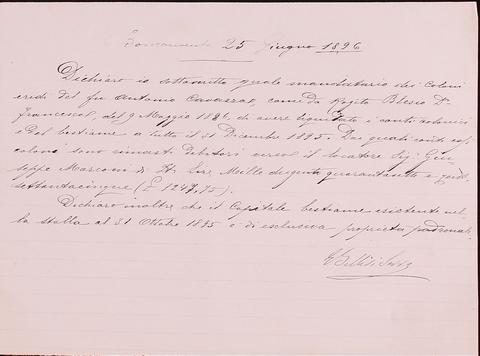 25 Giugno 1896
Dichiaro io sottoscritto quale mandatario dei Coloni
eredi del fu Antonio Cavazza, come da Rogito Blesio Dr
Francesco, del 9 Maggio 1886, di avere liquidato i conti colonici
e del bestiame a tutto il 31 Dicembre 1895. Dai quali conti essi
coloni sono rimasti debitori verso il locatore Sig. Giu-
seppe Marconi di It. Lire Mille duegento quarantasette e
settantacinque (£ 1247,75).
Dichiaro inoltre che il Capitale bestiame esistente nel-
la stalla al 31 Ottobre 1895 è di esclusiva proprietà padronale.